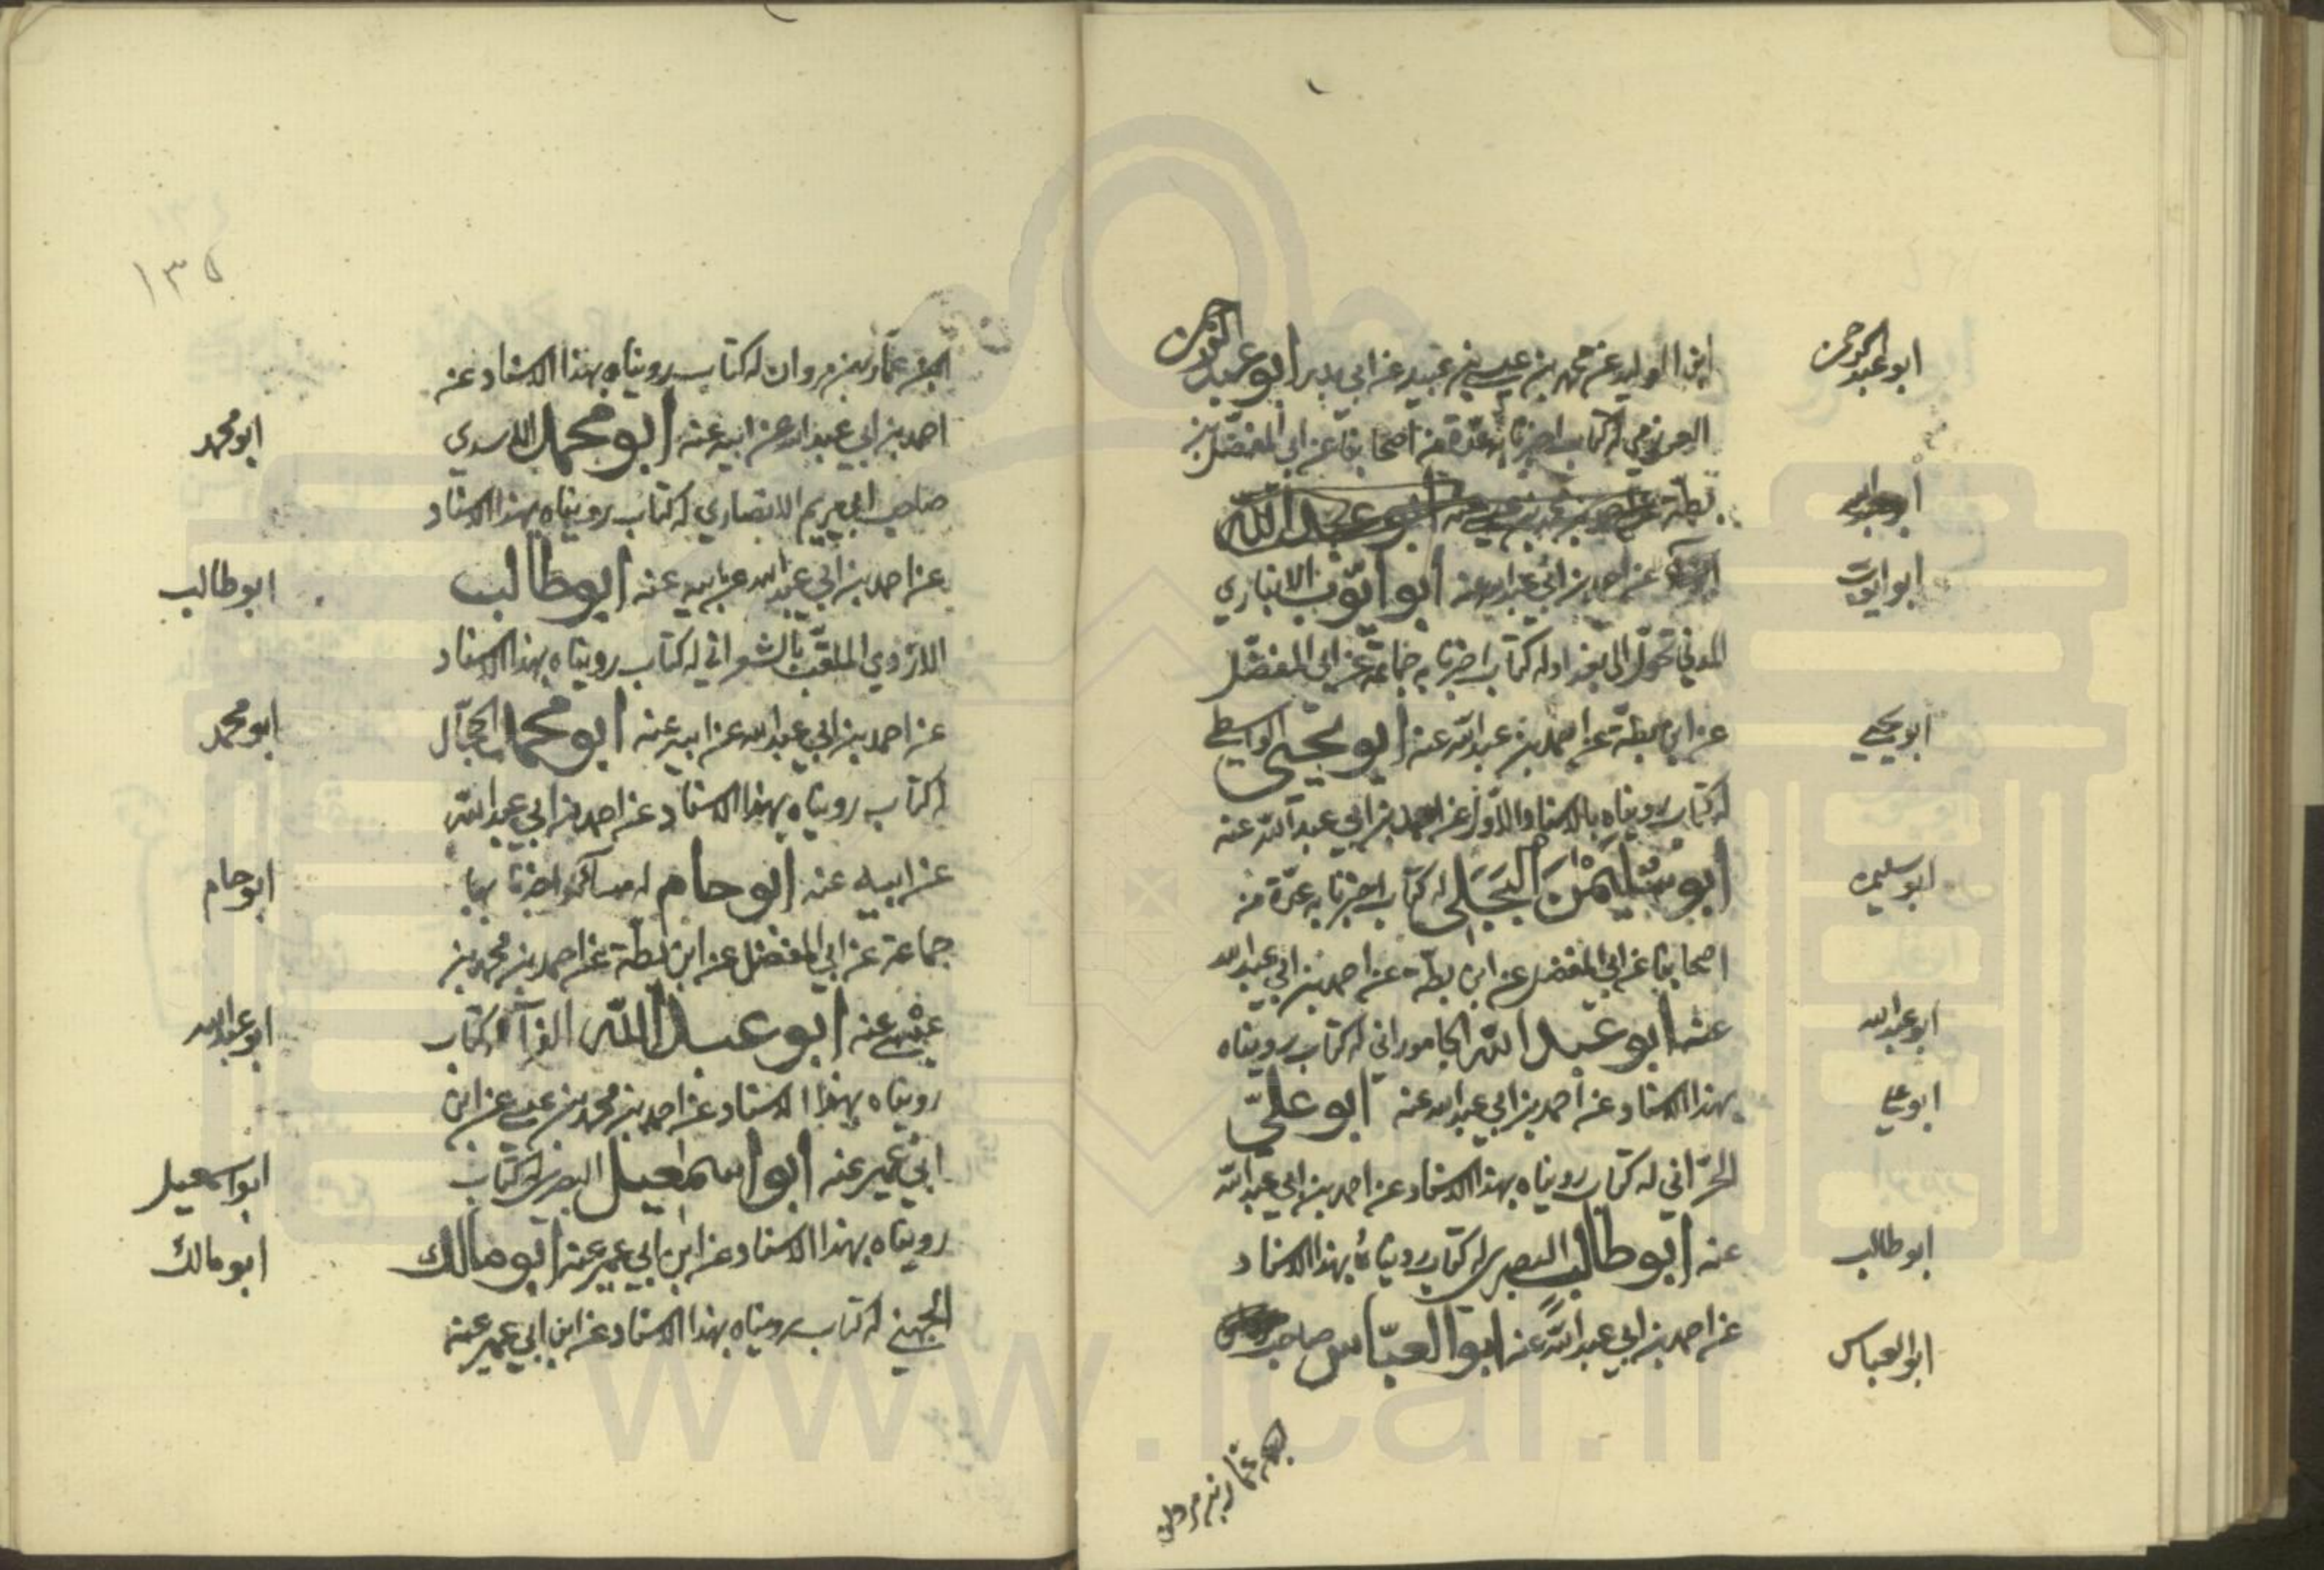 ابن الوليد عن محمد بن عيسى بن عبيد عن ابي بدر ابو عبد الرحمن
ابو عبد الرحمن
العرزمي له كتاب اخبرنا به عدة من اصحابنا عن ابي المفضل بن
بطة عن احمد بن محمد بن عيسى عنه ابو عبد الله
عن احمد بن ابي عبد الله عنه ابو ايوب الانباري
ابو ايوب
المدني تحول الى بغداد له كتاب اخبرنا به جماعة عن ابي المفضل
عن ابن بطة عن احمد بن عبد الله عنه ابو يحيى الواسطي
ابو يحيى
له كتاب رويناه بالاسناد الاول عن احمد بن ابي عبد الله عنه
ابو سليمن البجلي له كتاب اخبرنا به عدة من
ابو سليمن
اصحابنا عن ابي المفضل عن ابن بطة عن احمد بن ابي عبد الله
عنه ابو عبد الله الجاموراني له كتاب رويناه
ابو عبد الله
بهذا الاسناد عن احمد بن ابي عبد الله عنه ابو علي
ابو علي
الحراني له كتاب رويناه بهذا الاسناد عن احمد بن ابي عبد الله
عنه ابو طالب البصري له كتاب رويناه بهذا الاسناد
ابو طالب
عن احمد بن ابي عبد الله عنه ابو العباس صاحب
ابو العباس
عمار بن مروان
١٣٥
عمار بن مروان له كتاب رويناه بهذا الاسناد عن
احمد بن ابي عبد الله عن ابيه عنه ابو محمد الاسدي
ابو محمد
صاحب ابي مريم الانصاري له كتاب رويناه بهذا الاسناد
عن احمد بن ابي عبد الله عن ابيه عنه ابو طالب
ابو طالب
الازدي الملقب بالشعراني له كتاب رويناه بهذا الاسناد
عن احمد بن ابي عبد الله عن ابيه عنه ابو محمد الحجال
ابو محمد
له كتاب رويناه بهذا الاسناد عن احمد بن ابي عبد الله
عن ابيه عنه ابو حام له مسائل اخبرنا بها
ابو حام
جماعة عن ابي المفضل عن ابن بطة عن احمد بن محمد بن
عيسى عنه ابو عبد الله الفرآ له كتاب
ابو عبد الله
رويناه بهذا الاسناد عن احمد بن محمد بن عيسى عن ابن
ابي عمير عنه ابو اسمعيل البصري له كتاب
ابو اسمعيل
رويناه بهذا الاسناد عن ابن ابي عمير عنه ابو مالك
ابو مالك
الجهني له كتاب رويناه بهذا الاسناد عن ابن ابي عمير عنه
www.ical.ir